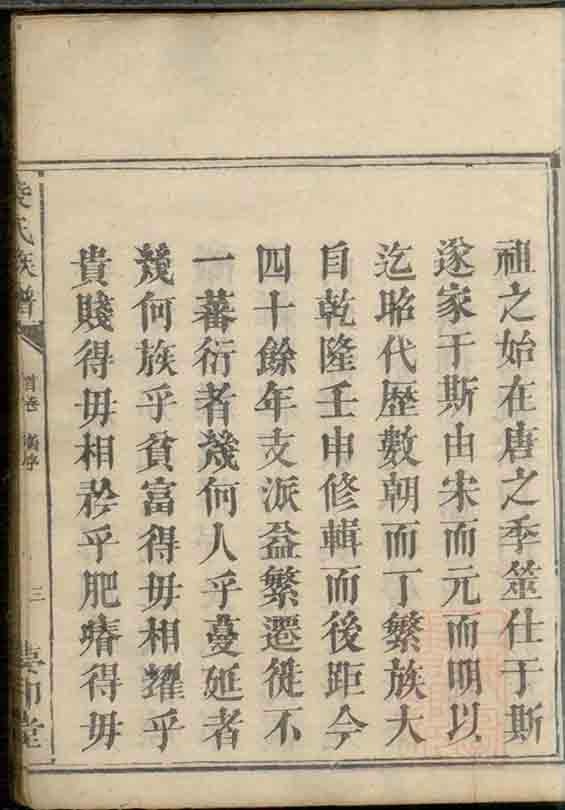 祖之始在唐之季筮仕于斯
遂家于斯由宋而元而明以
迄昭代歷數朝而丁繁族大
自乾隆壬申修輯而後距今
四十餘年支派益繁遷徙不
一蕃衍者幾何人乎蔓延者
幾何族乎貧富得毋相耀乎
貴賤得毋相矜乎肥瘠得毋
氏族譜
首卷
三
堂